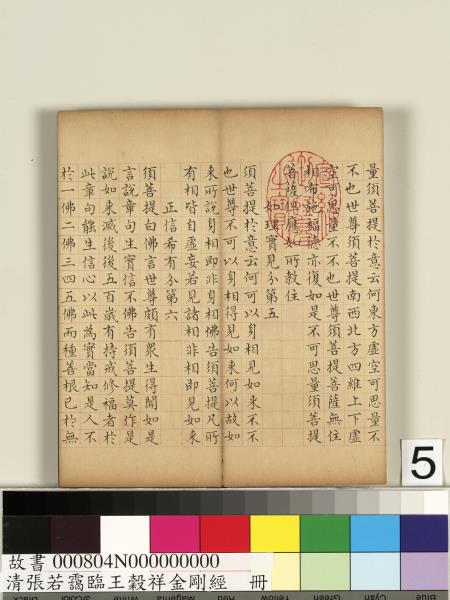 量須菩提於意云何東方虛空可思量不
不也世尊須菩提南西北方四維上下虛
空可思量不不也世尊須菩提菩薩無住
相布施福德亦復如是不可思量須菩提
菩薩但應如所教住
如理實見分第五
須菩提於意云何可以身相見如來不不
也世尊不可以身相得見如來何以故如
來所說身相即非身相佛告須菩提凡所
有相皆自虛妄若見諸相非相即見如來
正信希有分第六
須菩提白佛言世尊頗有衆生得聞如是
言說章句生實信不佛告須菩提莫作是
說如來滅後後五百歲有持戒修福者於
此章句能生信心以此為實當知是人不
於一佛二佛三四五佛而種善根已於無
5
故書 000804N000000000
清張若靄臨王穀祥金剛經 冊
Black
3/Color
White
Magenta
Red
Yellow
Green
Cyan
Blue